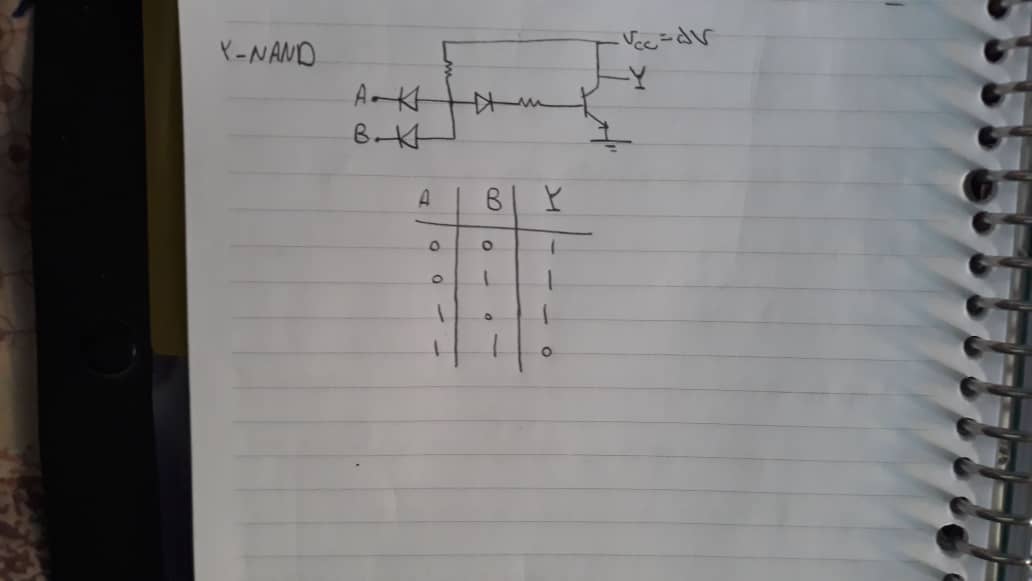 Y-NAND
Vcc=ΔV
Y
A
B
A B Y
0 0 1
0 1 1
1 0 1
1 1 0